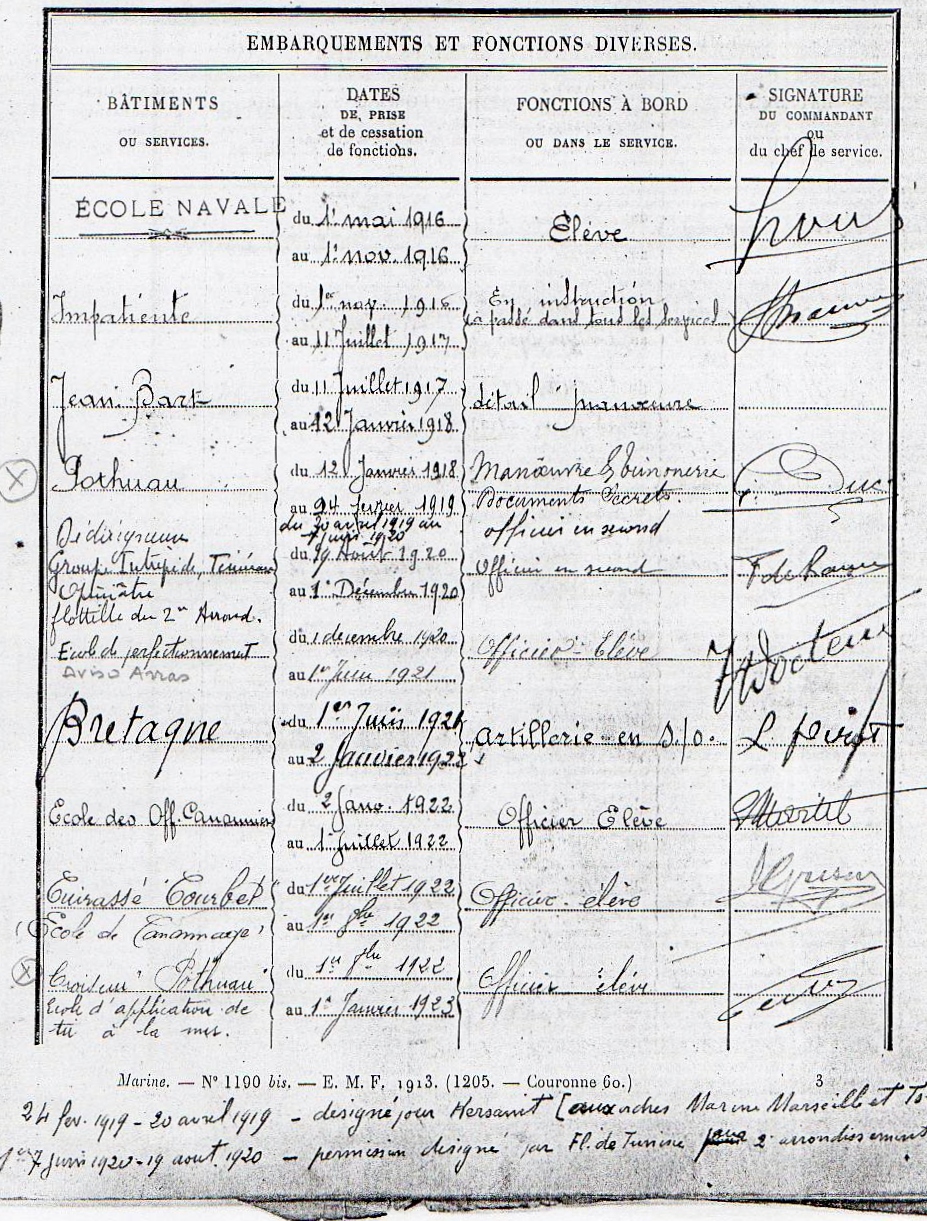 EMBARQUEMENTS ET FONCTIONS DIVERSES.
BÂTIMENTS
OU SERVICES.
DATES
DE PRISE
et de cessation
de fonctions.
FONCTIONS À BORD
OU DANS LE SERVICE.
SIGNATURE
DU COMMANDANT
ou
du chef de service.
ÉCOLE NAVALE
du 1er mai 1916
au 1er nov. 1916
Élève
Impatiente
du 1er nov. 1916
au 11 Juillet 1917
En instruction
(a passé dans tous les services)
Jean Bart
du 11 Juillet 1917
au 12 Janvier 1918
détail manœuvre
Pothuau
du 12 Janvier 1918
au 24 février 1919
du 20 avril 1919 au
7 juin 1920
Manœuvre & Timonerie
Documents Secrets.
officier en second
Duc
Groupe Intrépide, Téméraire
Opiniâtre
flottille du 2e Arrond.
du 19 Août 1920
au 1er Décembre 1920
Officier en second
Ecole de perfectionnement
Aviso Arras
du 1 decembre 1920
au 1er Juin 1921
Officier-Elève
Bretagne
du 1er Juin 1921
au 2 Janvier 1922
Artillerie en s/o.
Ecole des Off. Canonniers
du 2 Janv. 1922
au 1er Juillet 1922
Officier Elève
Cuirassé "Courbet"
(Ecole de Canonnage)
du 1er Juillet 1922
au 1er 9bre 1922
Officier-élève
Croiseur "Pothuau"
Ecole d'application de
tir à la mer.
du 1er 9bre 1922
au 1er Janvier 1923
Officier élève
Marine. — N° 1190 bis. — E. M. F. 1913. (1205. — Couronne 60.)
3
24 fev. 1919 - 20 avril 1919 - designé pour Kersaint [aux ordres Marine Marseille et To-
7 juin 1920 - 19 aout 1920 - permission designé par Fl. de Tunisie 2e arrondissement